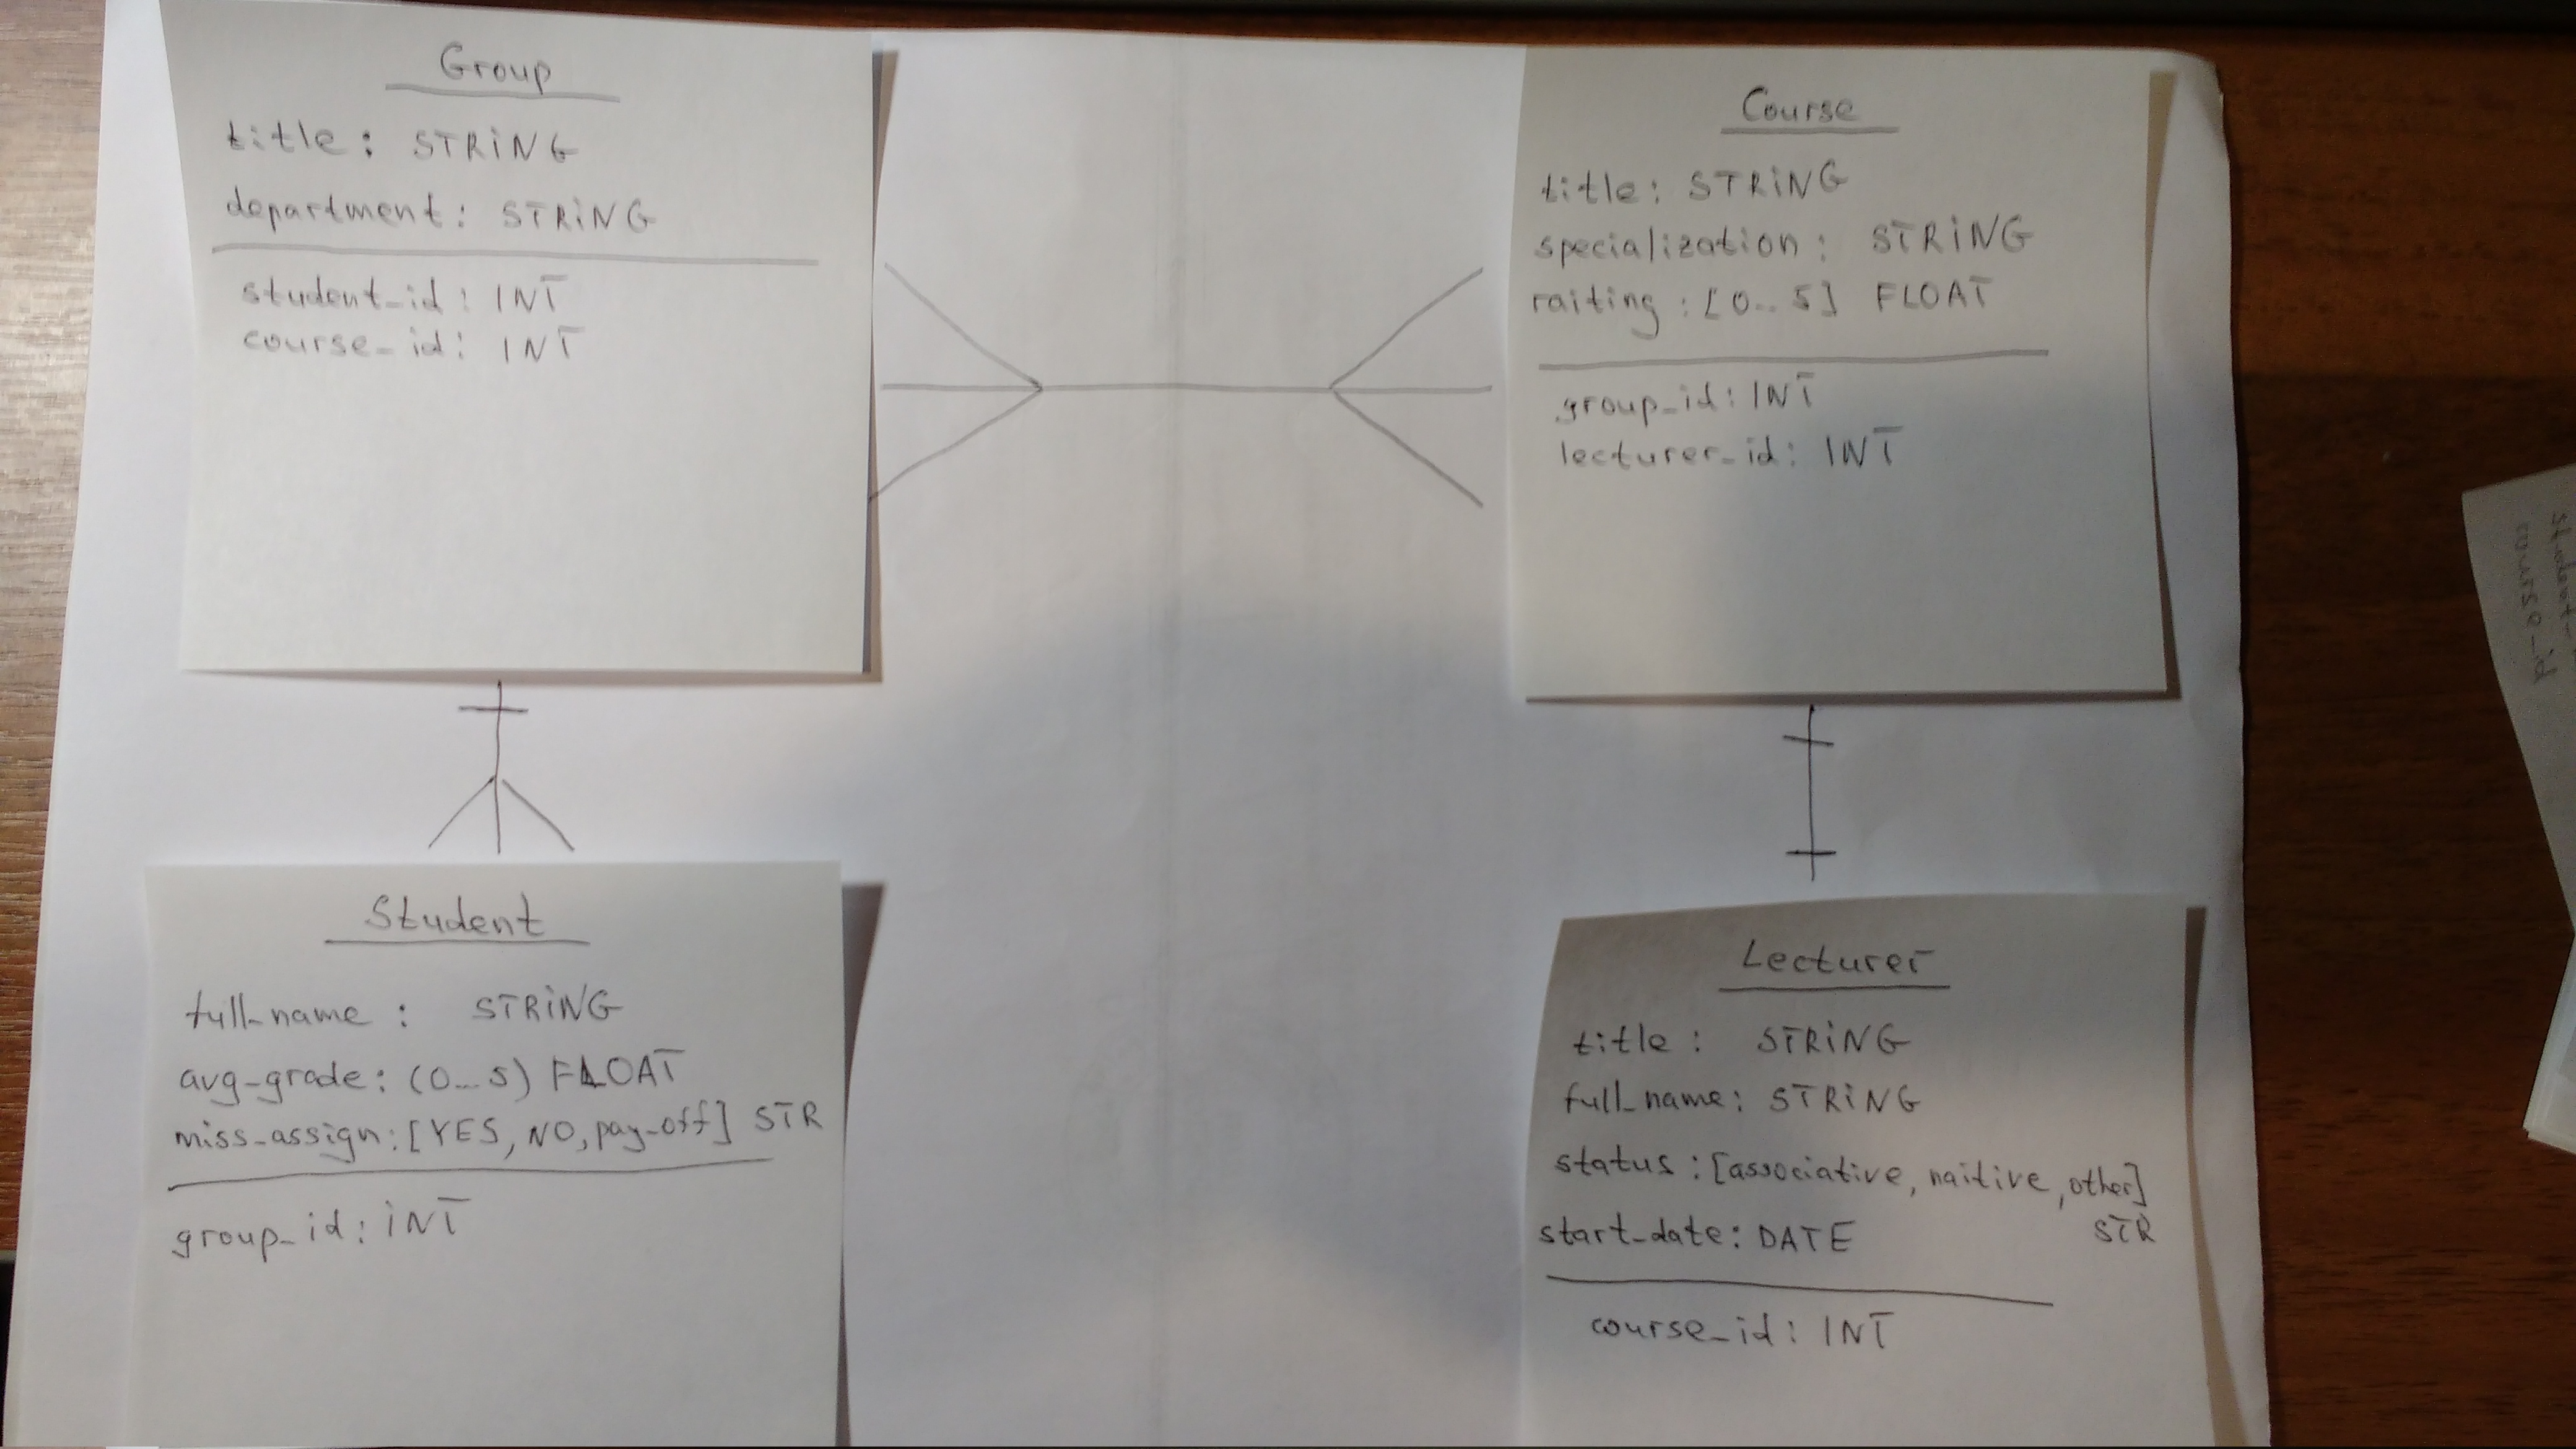 Group
title: STRiNG
department: STRiNG
student_id: INT
course_id: INT
Course
title: STRiNG
specialization: STRiNG
raiting: [0..5] FLOAT
group_id: INT
lecturer_id: INT
Student
full_name: STRiNG
avg_grade: (0...5) FLOAT
miss_assign: [YES, NO, pay_off] STR
group_id: iNT
Lecturer
title: STRiNG
full_name: STRiNG
status: [associative, naitive, other]
STR
start_date: DATE
course_id: INT
student_
course_id